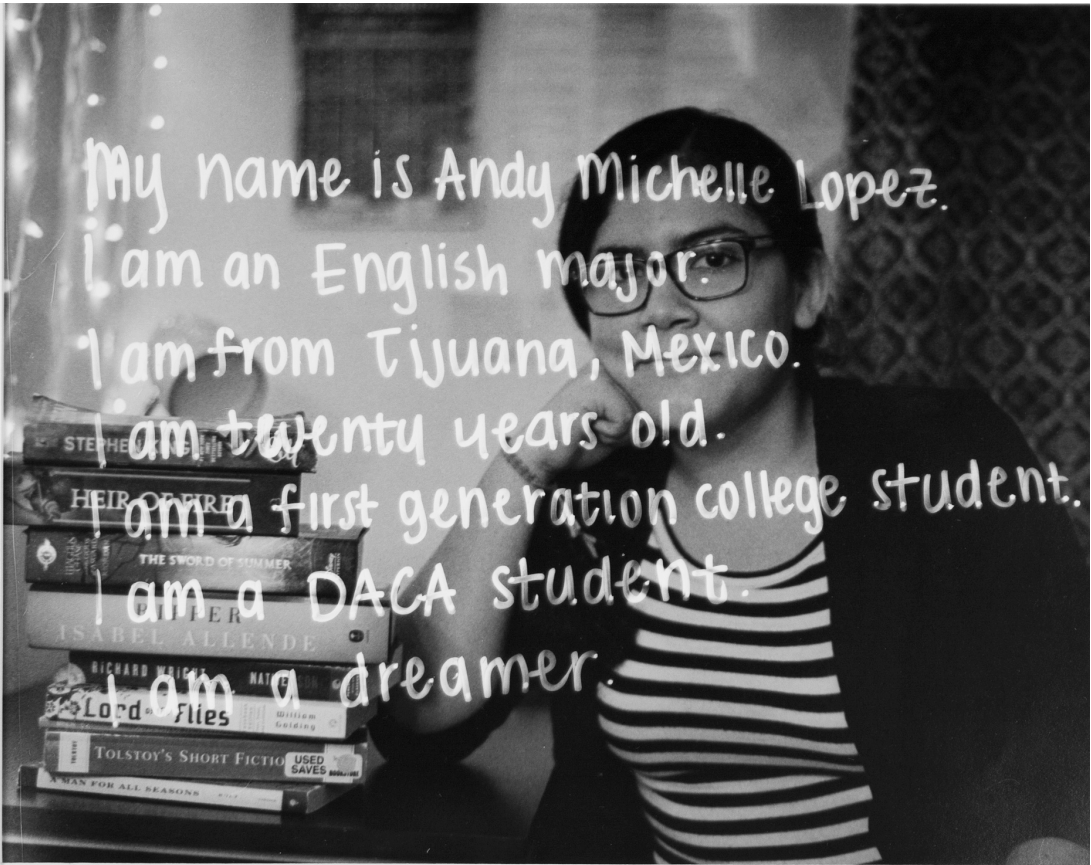 My name is Andy Michelle Lopez.
I am an English major.
I am from Tijuana, Mexico.
I am twenty years old.
I am a first generation college student.
I am a DACA student.
I am a dreamer.
STEPHEN KING
HEIR OF FIRE
THE SWORD OF SUMMER
RIPPER
ISABEL ALLENDE
RICHARD WRIGHT NATIVE SON
Lord of the Flies William Golding
TOLSTOY'S SHORT FICTIO
USED SAVES
A MAN FOR ALL SEASONS